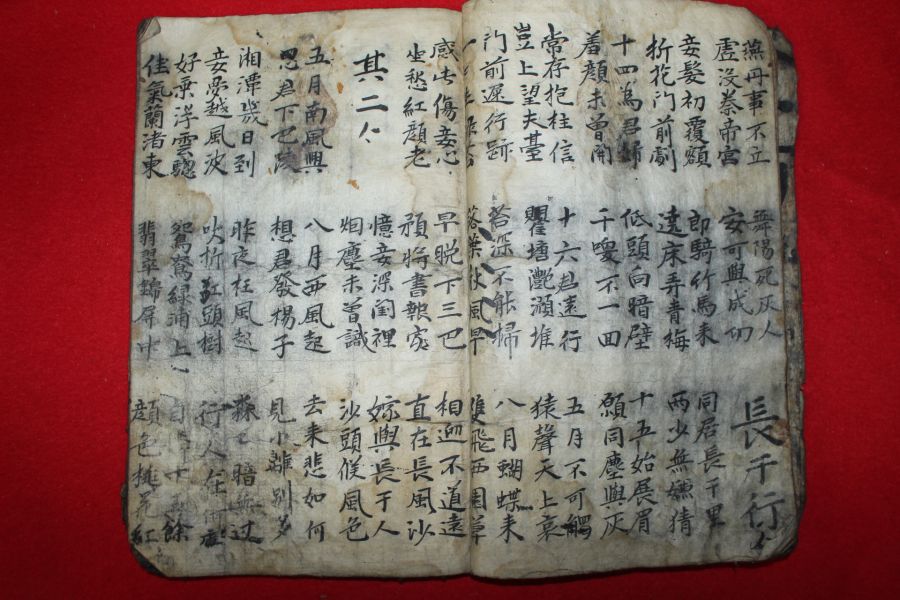 燕丹事不立
虛沒秦帝宮
舞陽死灰人
安可與成功
長干行
妾髮初覆額
折花門前劇
郎騎竹馬來
遶床弄青梅
同居長干里
兩少無嫌猜
十四為君婦
着顔未曾開
低頭向暗壁
千喚不一回
十五始展眉
願同塵與灰
常存抱柱信
豈上望夫臺
十六君遠行
瞿塘灩澦堆
五月不可觸
猿聲天上哀
門前遲行跡
苔深不能掃
落葉秋風早
八月蝴蝶来
雙飛西園草
感此傷妾心
坐愁紅顔老
早晚下三巴
預將書報家
相迎不道遠
直在長風沙
其二
憶妾深閨裡
烟塵未曾識
嫁與長干人
沙頭候風色
五月南風興
思君下巴陵
八月西風起
想君發楊子
去来悲如何
見小離別多
湘潭幾日到
妾夢越風波
昨夜狂風起
吹折江頭樹
暗無過
行人在何處
好乘浮雲驄
佳氣蘭渚東
鴛鴦綠浦上
翡翠錦屏中
自 十五餘
顔色桃花紅